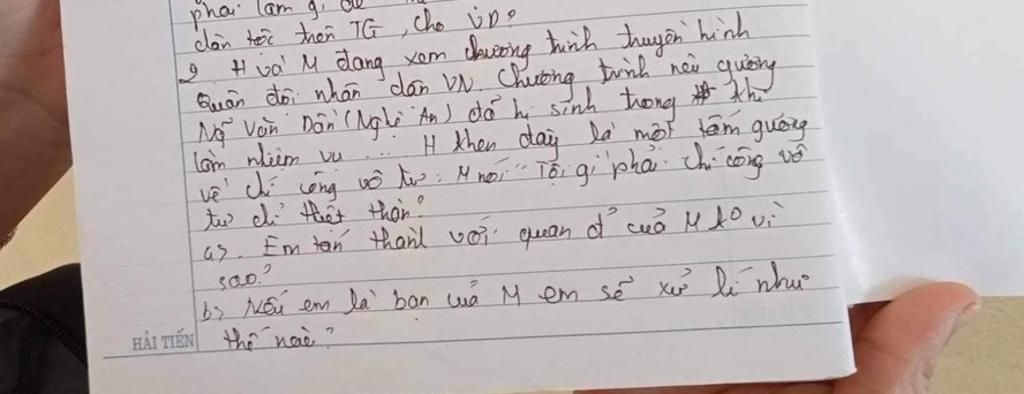 phải làm gì để
dân tộc trên TG, cho VD?
2 H và M đang xem chương trình truyền hình
Quân đội nhân dân VN. Chương trình nêu gương
Ngõ Văn Dân (Nghệ An) đã hi sinh trong khi
làm nhiệm vụ ... H khen đây là một tấm gương
về chí công vô tư. M nói "Tội gì phải chí công vô
tư chỉ thiệt thân?
a>. Em tán thành với quan đ' của M k° vì
sao?
b> Nếu em là bạn của M em sẽ xử lí như
thế nào?
HẢI TIẾN